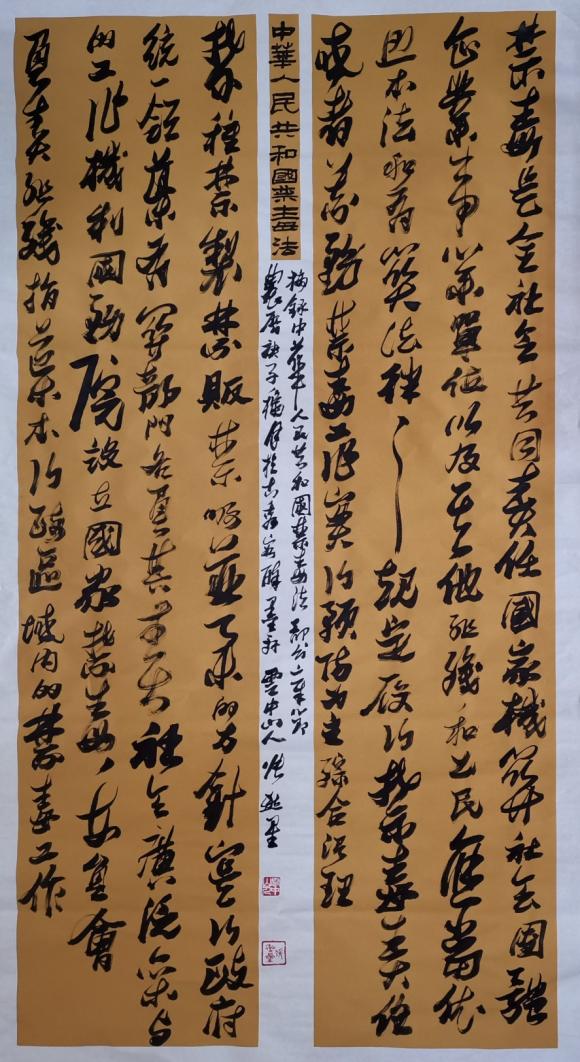 禁毒是全社会共同责任國家機関社会團體
企業事業單位以及其他組織和公民應當依
照本法和有関法律規定履行禁毒責任
或者義務禁毒工作實行預防为主綜合治理
中華人民共和國禁毒法
摘録中華人民共和國禁毒法部分章節
歲庚子穐月於古醉墨軒雲中山人
禁種禁製禁販禁吸並舉的方針實行政府
統一領導有関部門各負其責社會廣泛參与
的工作機制國務院設立國家禁毒委員會
負責組織指導本行政區域内的禁毒工作